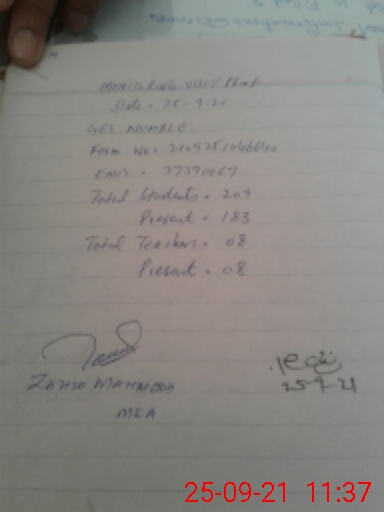 MONITORING VISIT
Date = 25-9-21
GES NUMBLE
Form No =
EMIS = 37370067
Total Students = 209
Present = 183
Total Teachers = 08
Present = 08
ZAHID MAHMOOD
MEA
25-9-21
25-09-21 11:37